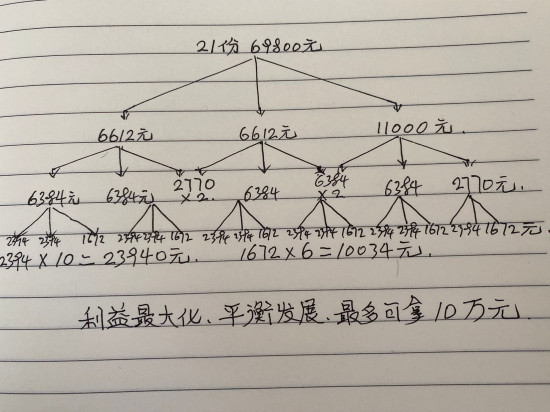 21份 69800元
6612元 6612元 11000元.
6384元 6384元 2770 ×2. 6384 6384 ×2 6384 2770元.
2394 2394 1672 2394 2394 1672 2394 2394 1672 2394 2394 1672 2394 2394 1672 2394 1672元.
2394×10=23940元. 1672×6=10034元.
利益最大化、平衡发展、最多可拿10万元.